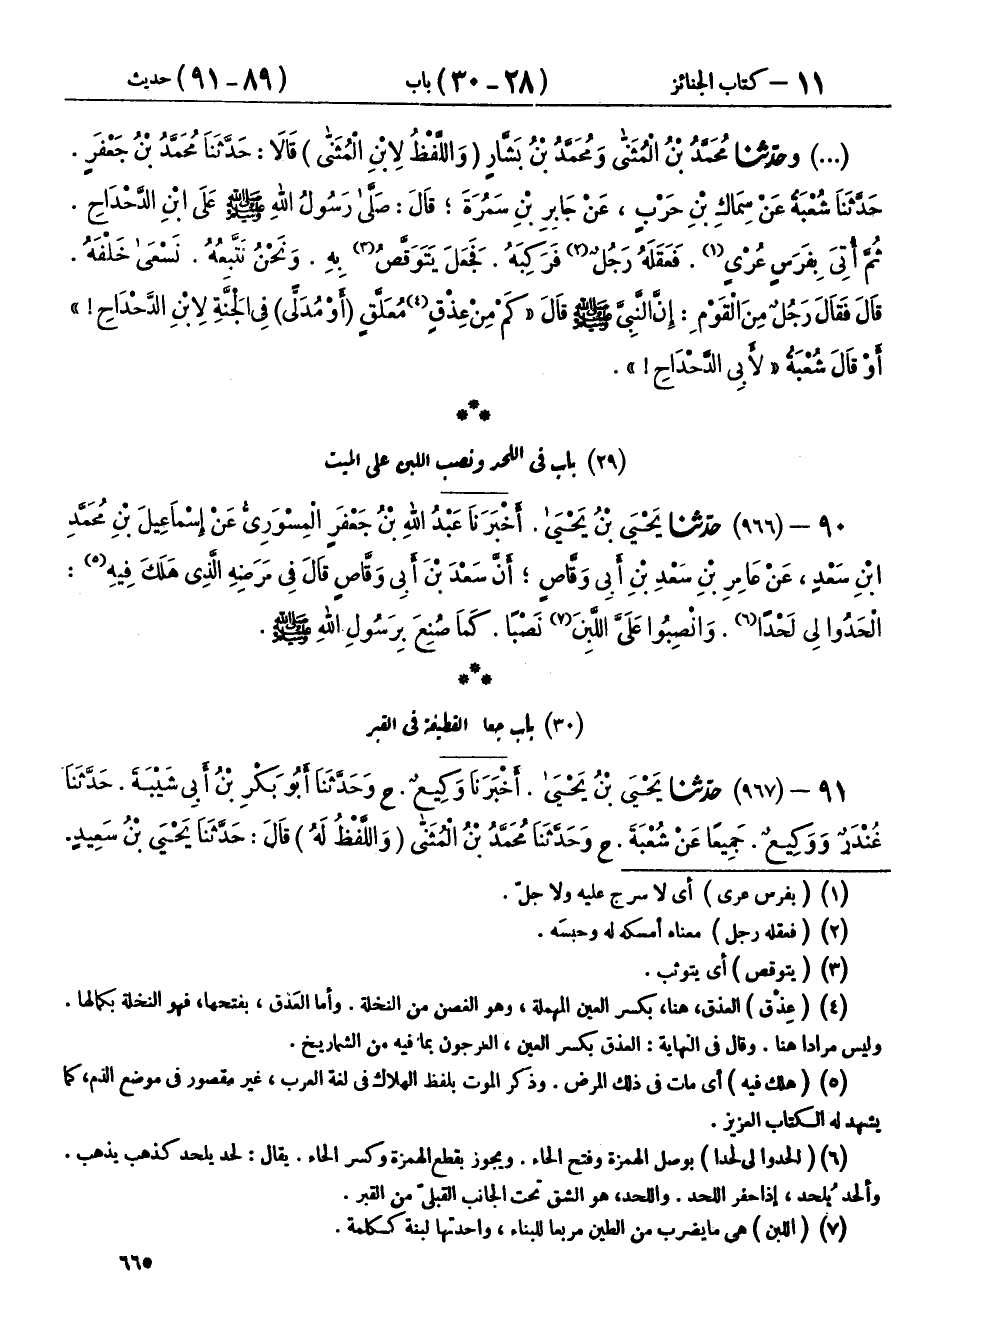 ١١ – كتاب الجنائز (٢٨ - ٣٠) باب (٨٩ - ٩١) حديث
(...) وحدّثنا مُحَمَّدُ بْنُ الْمُثَنَّىٰ وَمُحَمَّدُ بْنُ بَشَّارٍ ( وَاللَّفْظُ لِابْنِ الْمُثَنَّىٰ ) قَالَا : حَدَّثَنَا مُحَمَّدُ بْنُ جَعْفَرٍ .
حَدَّثَنَا شُعْبَةُ عَنْ سِمَاكِ بْنِ حَرْبٍ ، عَنْ جَابِرِ بْنِ سَمُرَةَ ؛ قَالَ : صَلَّىٰ رَسُولُ اللهِ ﷺ عَلَى ابْنِ الدَّحْدَاحِ .
ثُمَّ أُتِىَ بِفَرَسٍ عُرْىٍ(١) . فَعَقَلَهُ رَجُلٌ(٢) فَرَكِبَهُ . فَجَعَلَ يَتَوَقَّصُ(٣) بِهِ . وَنَحْنُ نَتَّبِعُهُ . نَسْعَىٰ خَلْفَهُ .
قَالَ فَقَالَ رَجُلٌ مِنَ الْقَوْمِ : إِنَّ النَّبِىَّ ﷺ قَالَ « كَمْ مِنْ عِذْقٍ(٤) مُعَلَّقٍ (أَوْ مُدَلًّى) فِى الْجَنَّةِ لِابْنِ الدَّحْدَاحِ ! »
أَوْ قَالَ شُعْبَةُ « لِأَبِى الدَّحْدَاحِ ! » .
***
(٢٩) باب فى اللحد ونصب اللبن على الميت
٩٠ – (٩٦٦) حدّثنا يَحْيَىٰ بْنُ يَحْيَىٰ . أَخْبَرَنَا عَبْدُ اللهِ بْنُ جَعْفَرٍ الْمِسْوَرِىُّ عَنْ إِسْمَاعِيلَ بْنِ مُحَمَّدِ
ابْنِ سَعْدٍ ، عَنْ عَامِرِ بْنِ سَعْدِ بْنِ أَبِى وَقَّاصٍ ؛ أَنَّ سَعْدَ بْنَ أَبِى وَقَّاصٍ قَالَ فِى مَرَضِهِ الَّذِى هَلَكَ فِيهِ(٥) :
الْحَدُوا لِى لَحْدًا(٦) . وَانْصِبُوا عَلَىَّ اللَّبِنَ(٧) نَصْبًا . كَمَا صُنِعَ بِرَسُولِ اللهِ ﷺ .
***
(٣٠) باب جعل القطيفة فى القبر
٩١ – (٩٦٧) حدّثنا يَحْيَىٰ بْنُ يَحْيَىٰ . أَخْبَرَنَا وَكِيعٌ . ح وَحَدَّثَنَا أَبُو بَكْرِ بْنُ أَبِى شَيْبَةَ . حَدَّثَنَا
غُنْدَرٌ وَوَكِيعٌ . جَمِيعًا عَنْ شُعْبَةَ . ح وَحَدَّثَنَا مُحَمَّدُ بْنُ الْمُثَنَّىٰ ( وَاللَّفْظُ لَهُ ) قَالَ : حَدَّثَنَا يَحْيَىٰ بْنُ سَعِيدٍ.
(١) ( بفرس عرى ) أى لا سرج عليه ولا جلّ .
(٢) ( فعقله رجل ) معناه أمسكه له وحبسه .
(٣) ( يتوقص ) أى يتوثب .
(٤) ( عِذْق ) العذق، هنا، بكسر العين المهملة ، وهو الغصن من النخلة . وأما العَذق ، بفتحها، فهو النخلة بكمالها .
وليس مرادا هنا . وقال فى النهاية : العذق بكسر العين ، العرجون بما فيه من الشماريخ .
(٥) ( هلك فيه ) أى مات فى ذلك المرض . وذكر الموت بلفظ الهلاك فى لغة العرب ، غير مقصور فى موضع الذم، كما
يشهد له الكتاب العزيز .
(٦) ( الحدوا لى لحدا ) بوصل الهمزة وفتح الحاء . ويجوز بقطع الهمزة وكسر الحاء . يقال : لحد يلحد كذهب يذهب .
وألحد يُلحد ، إذا حفر اللحد . واللحد، هو الشق تحت الجانب القبلىّ من القبر .
(٧) ( اللبن ) هى ما يضرب من الطين مربعا للبناء ، واحدتها لبنة ككلمة .
٦٦٥